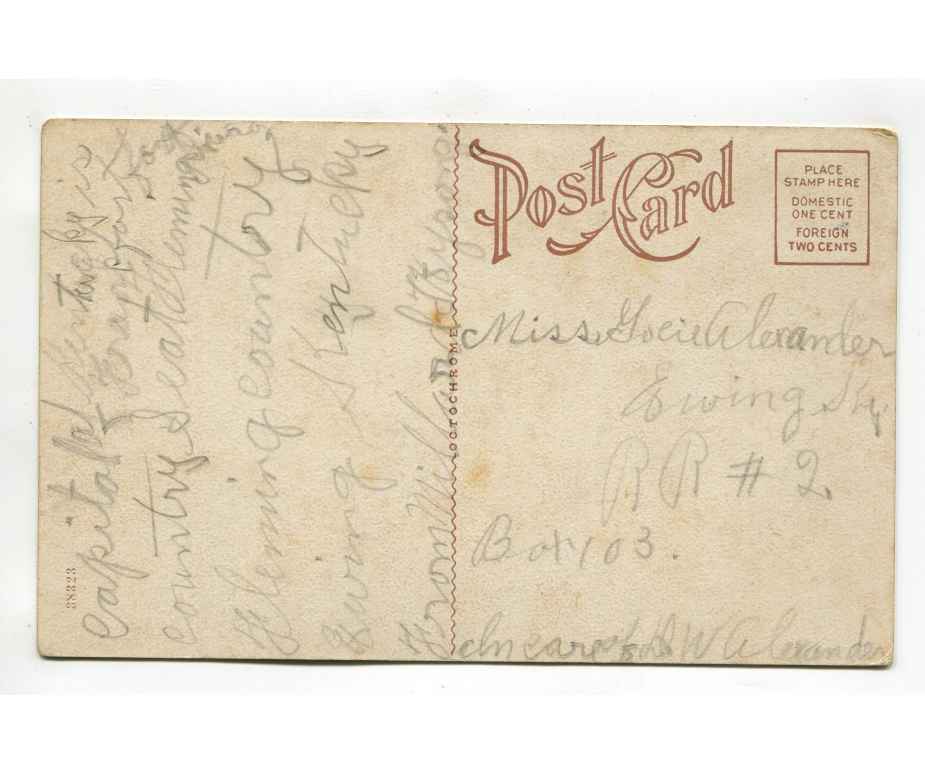 Capital Kentucky is
Frankfort
country seat Flemingsburg
Fleming country
Ewing Kentucky
From Millard
38323
OCTOCHROME
Post Card
PLACE
STAMP HERE
DOMESTIC
ONE CENT
FOREIGN
TWO CENTS
Miss Alexander
Ewing Ky.
RR # 2
Box 103.
In care of W Alexander